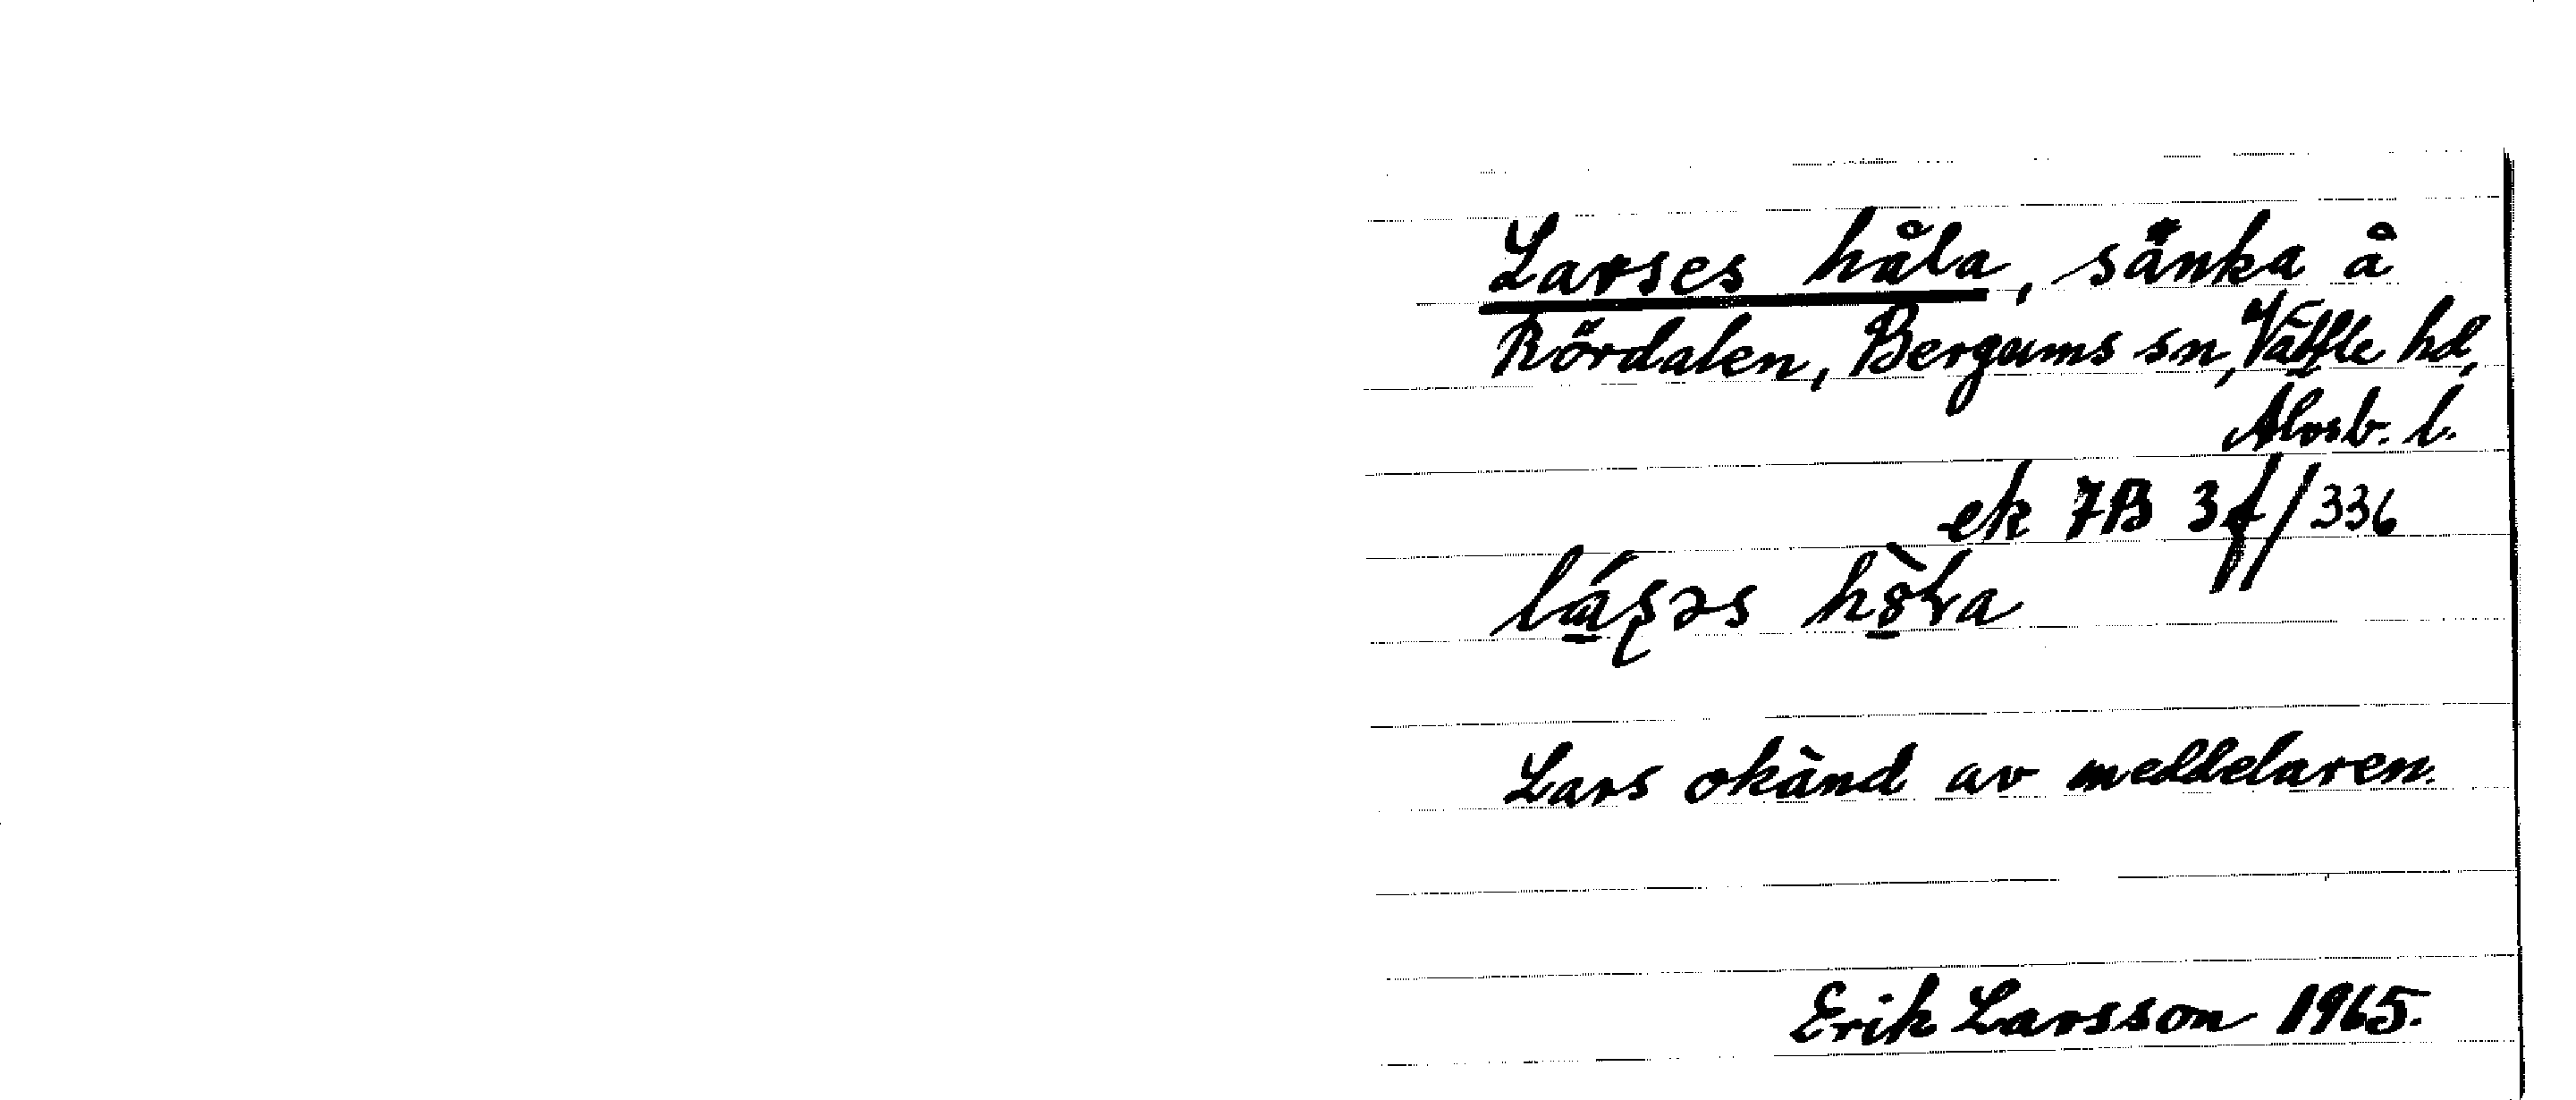 Larses håla, sänka å
Rördalen, Bergums sn, Vättle hd,
Älvsb. l.
ek 7B 3f/336
Lars okänd av meddelaren.
Erik Larsson 1965.